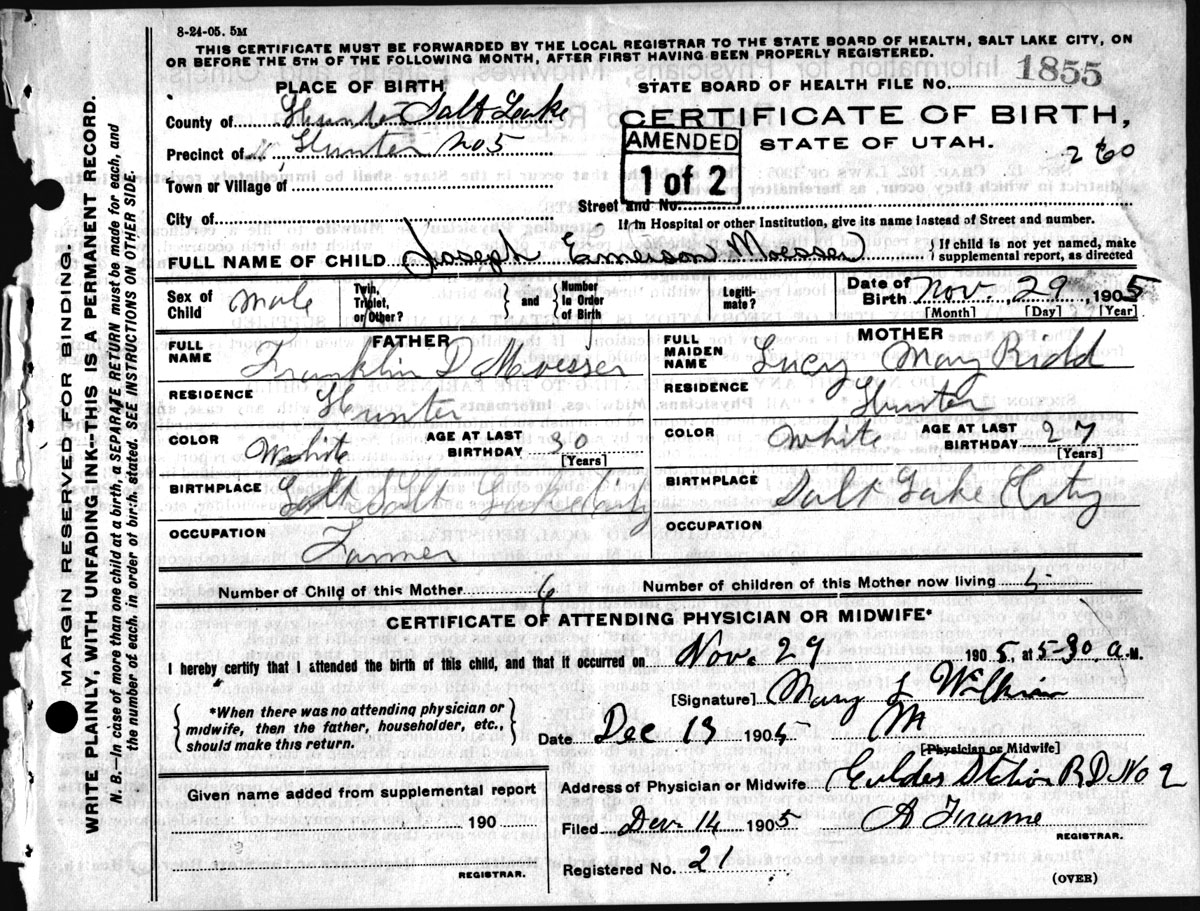 8-24-05. 5M
THIS CERTIFICATE MUST BE FORWARDED BY THE LOCAL REGISTRAR TO THE STATE BOARD OF HEALTH, SALT LAKE CITY, ON
OR BEFORE THE 5TH OF THE FOLLOWING MONTH, AFTER FIRST HAVING BEEN PROPERLY REGISTERED.
PLACE OF BIRTH
STATE BOARD OF HEALTH FILE NO. 1855
County of Hunter Salt Lake
CERTIFICATE OF BIRTH,
STATE OF UTAH.
AMENDED
1 of 2
260
Precinct of Hunter No 5
Town or Village of
Street and No.
City of
If in Hospital or other Institution, give its name instead of Street and number.
FULL NAME OF CHILD Joseph Emerson Moesser
{ If child is not yet named, make
supplemental report, as directed
Sex of Child male
Twin, Triplet, or Other?
} and {
Number in Order of Birth
Legitimate?
Date of Birth Nov. 29, 1905
[Month] [Day] [Year]
FATHER
FULL NAME Franklin D Moesser
RESIDENCE Hunter
COLOR White
AGE AT LAST BIRTHDAY 30
[Years]
BIRTHPLACE Salt Salt Lake City
OCCUPATION Farmer
MOTHER
FULL MAIDEN NAME Lucy May Ridd
RESIDENCE Hunter
COLOR White
AGE AT LAST BIRTHDAY 27
[Years]
BIRTHPLACE Salt Lake City
OCCUPATION
Number of Child of this Mother 6
Number of children of this Mother now living 5
CERTIFICATE OF ATTENDING PHYSICIAN OR MIDWIFE*
I hereby certify that I attended the birth of this child, and that it occurred on Nov. 29 1905, at 5-30 a.M.
{ *When there was no attending physician or
midwife, then the father, householder, etc.,
should make this return. }
[Signature] Mary L
M
Date Dec 13 1905
[Physician or Midwife]
Address of Physician or Midwife Station R.D. No 2
Given name added from supplemental report
190
REGISTRAR.
Filed Dec. 14 1905
REGISTRAR.
Registered No. 21
(OVER)
MARGIN RESERVED FOR BINDING.
WRITE PLAINLY, WITH UNFADING INK--THIS IS A PERMANENT RECORD.
N. B.--In case of more than one child at a birth, a SEPARATE RETURN must be made for each, and
the number of each, in order of birth, stated. SEE INSTRUCTIONS ON OTHER SIDE.